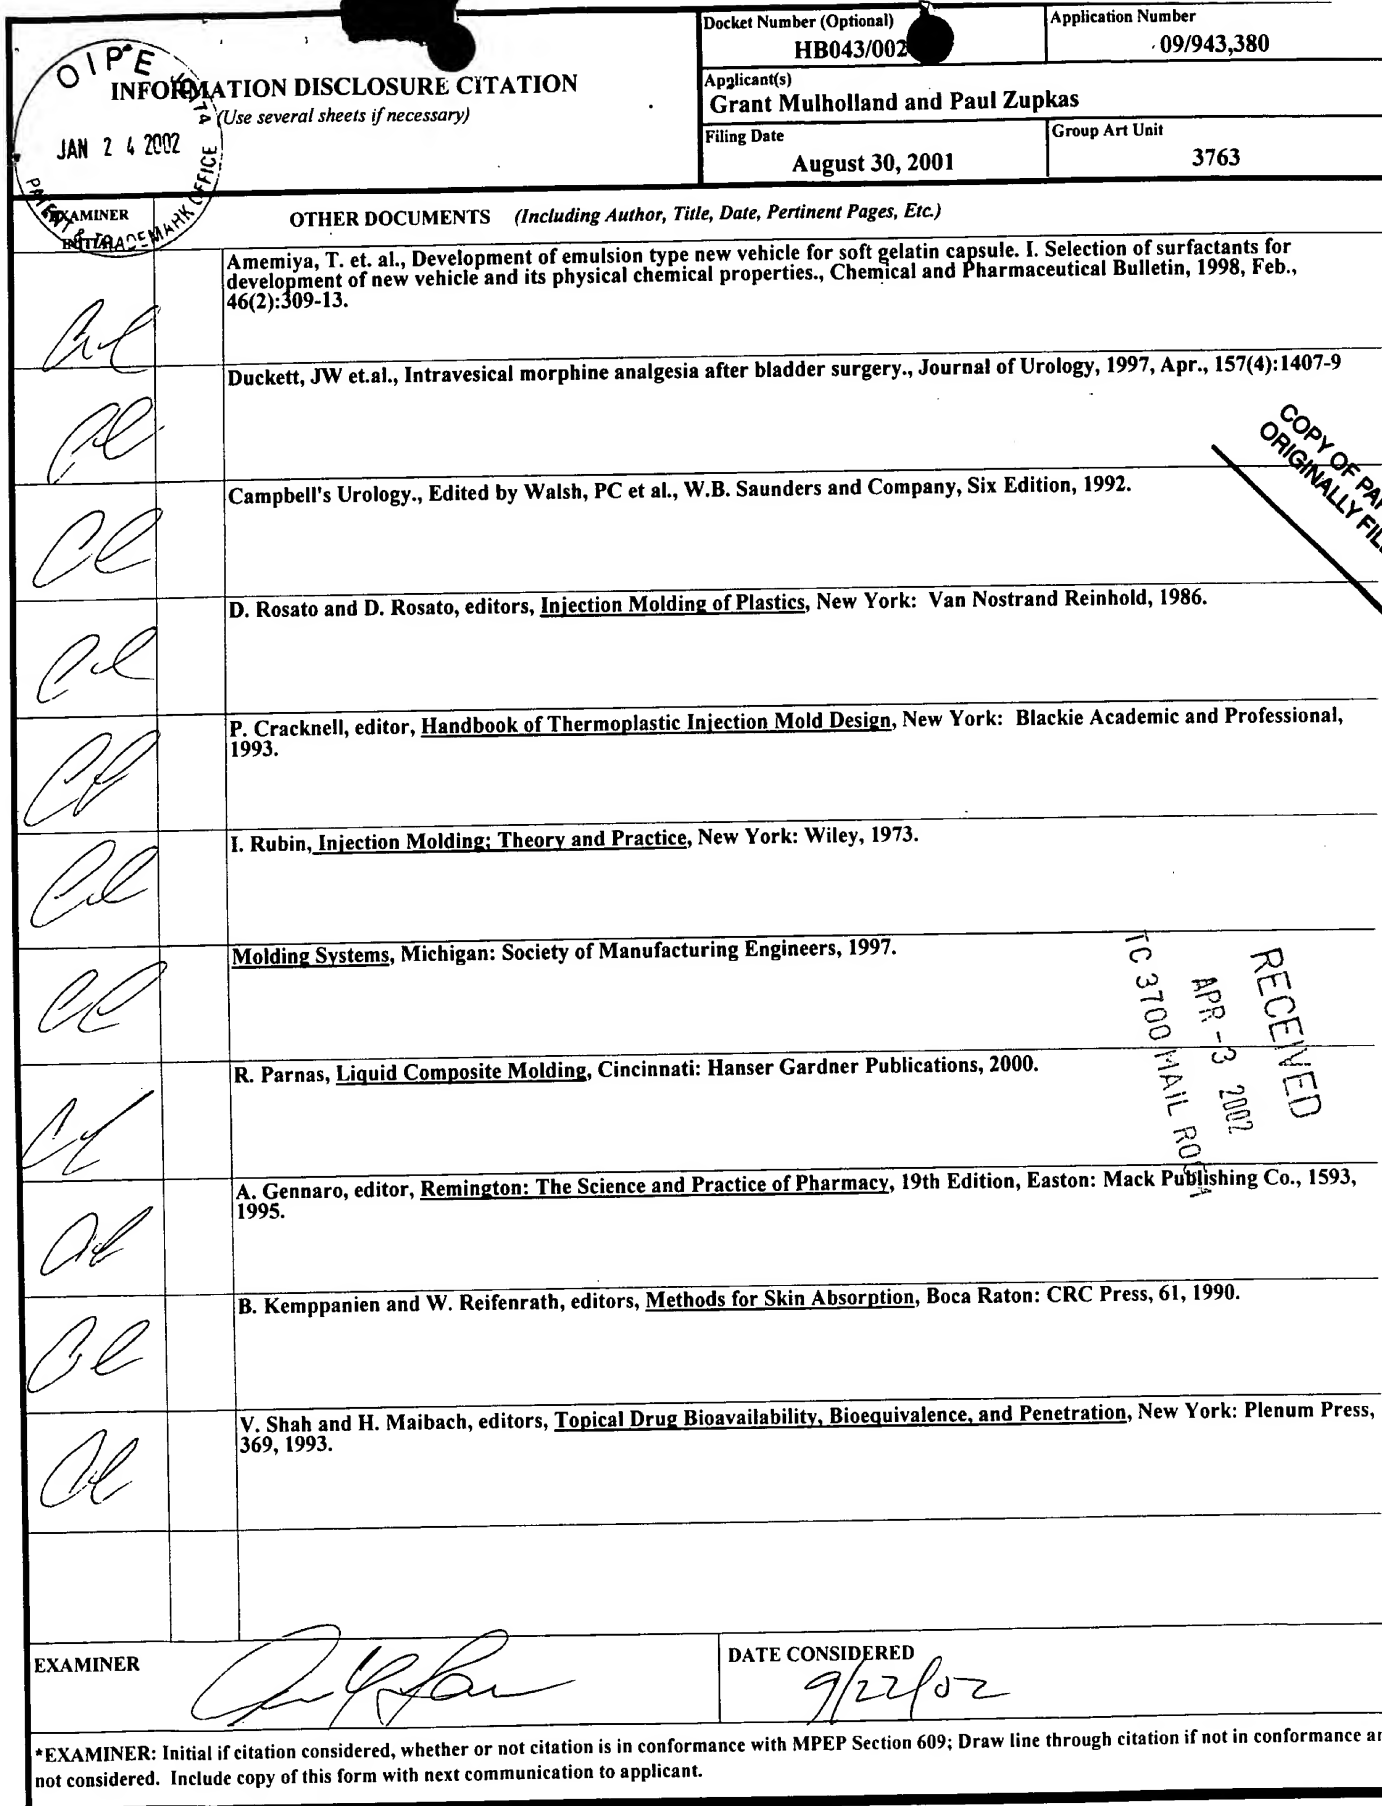 Docket Number (Optional)
HB043/002
Application Number
09/943,380
INFORMATION DISCLOSURE CITATION
(Use several sheets if necessary)
OIPE
JAN 2 4 2002
PATENT & TRADEMARK OFFICE
Applicant(s)
Grant Mulholland and Paul Zupkas
Filing Date
August 30, 2001
Group Art Unit
3763
EXAMINER
INITIAL
OTHER DOCUMENTS (Including Author, Title, Date, Pertinent Pages, Etc.)
Amemiya, T. et. al., Development of emulsion type new vehicle for soft gelatin capsule. I. Selection of surfactants for
development of new vehicle and its physical chemical properties., Chemical and Pharmaceutical Bulletin, 1998, Feb.,
46(2):309-13.
Duckett, JW et.al., Intravesical morphine analgesia after bladder surgery., Journal of Urology, 1997, Apr., 157(4):1407-9
COPY OF PAP
ORIGINALLY FILE
Campbell's Urology., Edited by Walsh, PC et al., W.B. Saunders and Company, Six Edition, 1992.
D. Rosato and D. Rosato, editors, Injection Molding of Plastics, New York: Van Nostrand Reinhold, 1986.
P. Cracknell, editor, Handbook of Thermoplastic Injection Mold Design, New York: Blackie Academic and Professional,
1993.
I. Rubin, Injection Molding; Theory and Practice, New York: Wiley, 1973.
Molding Systems, Michigan: Society of Manufacturing Engineers, 1997.
RECEIVED
APR -3 2002
TC 3700 MAIL ROOM
R. Parnas, Liquid Composite Molding, Cincinnati: Hanser Gardner Publications, 2000.
A. Gennaro, editor, Remington: The Science and Practice of Pharmacy, 19th Edition, Easton: Mack Publishing Co., 1593,
1995.
B. Kemppanien and W. Reifenrath, editors, Methods for Skin Absorption, Boca Raton: CRC Press, 61, 1990.
V. Shah and H. Maibach, editors, Topical Drug Bioavailability, Bioequivalence, and Penetration, New York: Plenum Press,
369, 1993.
EXAMINER
DATE CONSIDERED
9/22/02
*EXAMINER: Initial if citation considered, whether or not citation is in conformance with MPEP Section 609; Draw line through citation if not in conformance an
not considered. Include copy of this form with next communication to applicant.